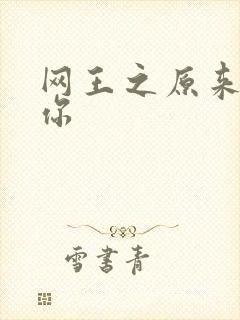 网王之原来
你
雪书青